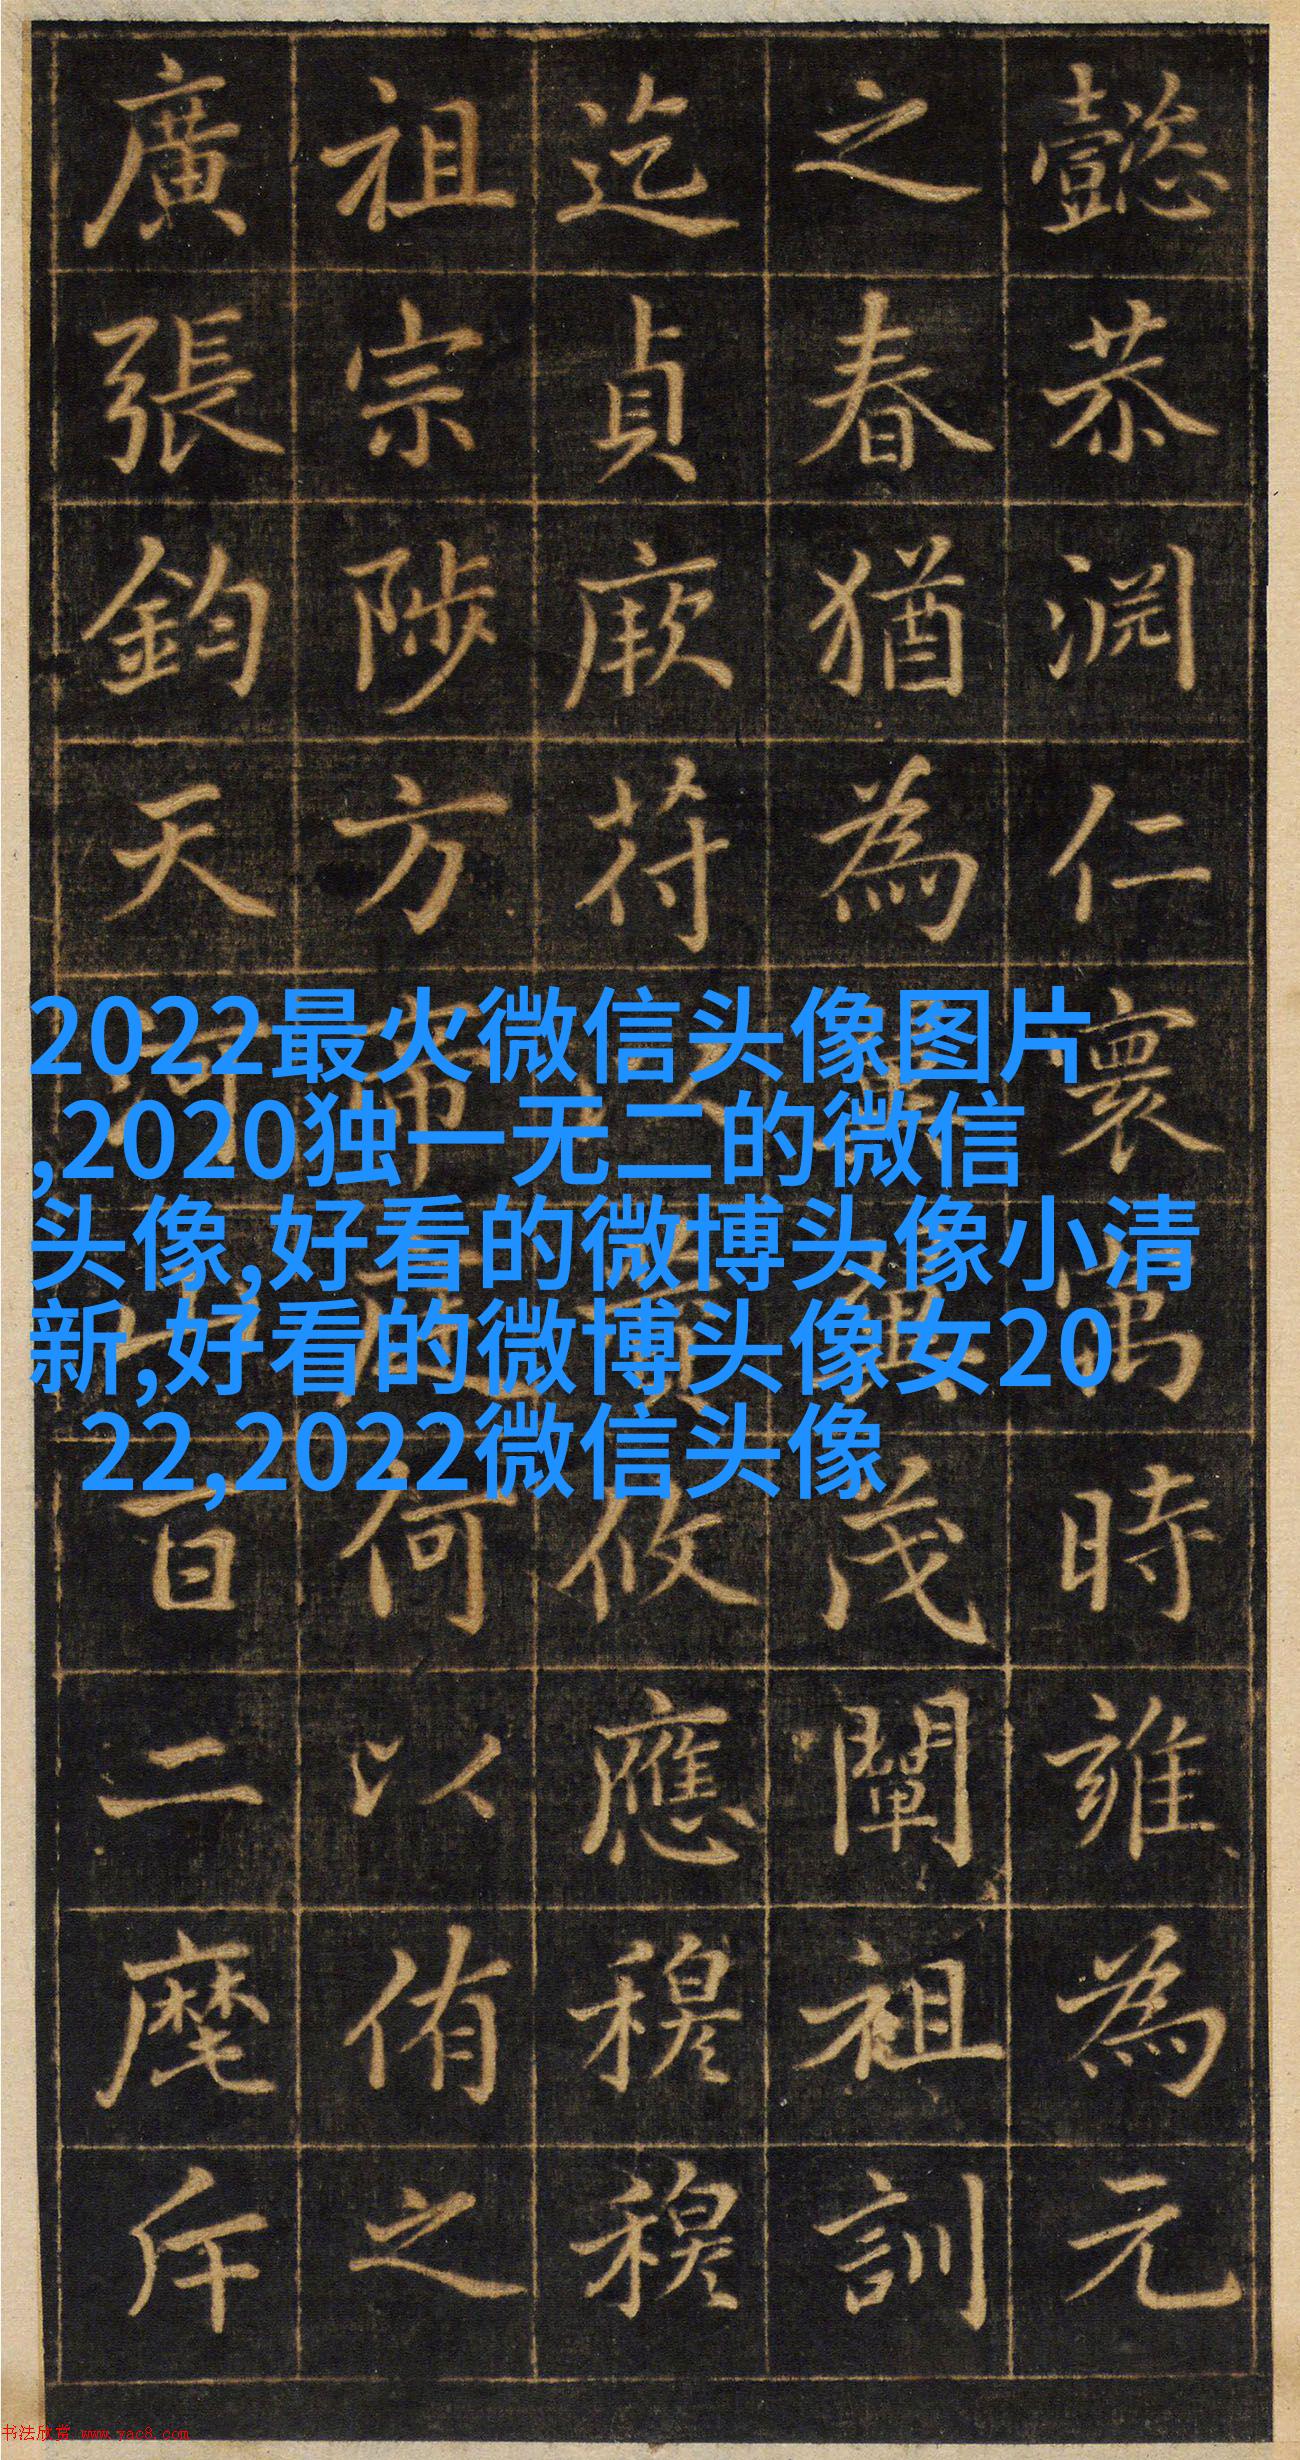 懿恭渊仁寰時雍為元
之春猶為茂闡祖訓
迄貞厥苻攸應穆穆
祖宗陟方帝何以侑之
廣張鈞天河百二麾斥
2022最火微信头像图片
,2020独一无二的微信
头像,好看的微博头像小清
新,好看的微博头像女20
22,2022微信头像
书法欣赏 www.yac8.com